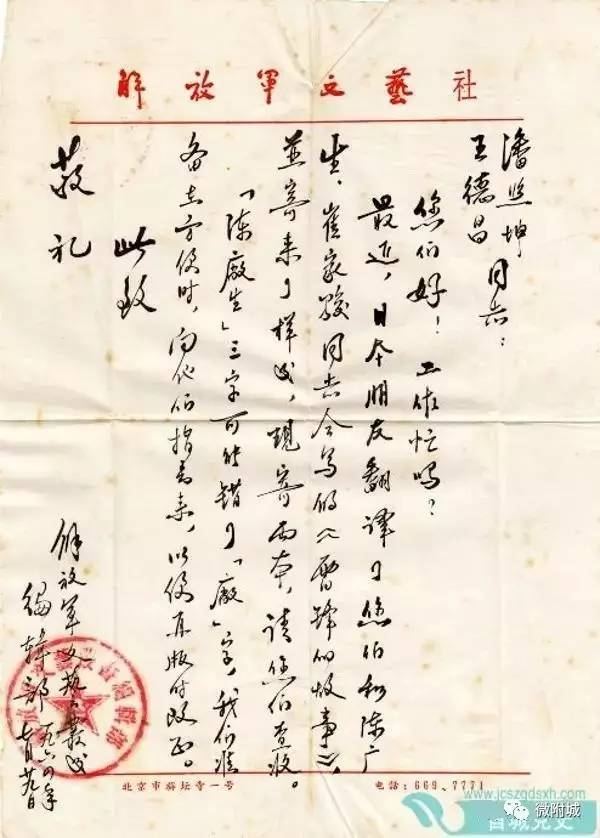 解放軍文藝社
潘照坤
王德昌 同志：
您们好！工作忙吗？
最近，日本朋友翻译了您们和陈广
生、崔家骏同志合写的《雷锋的故事》，
并寄来了样书，现寄两本，请您们查收。
「陈廠生」三字可能错了「廠」字，我们准
备在方便时，向他们指出来，以便再版时改正。
此致
敬礼
解放军文艺丛书
编辑部 一九六四年
七月廿九日
北京市旃坛寺一号
电话：669、7771
www.jcszgdsxh.com
微附城